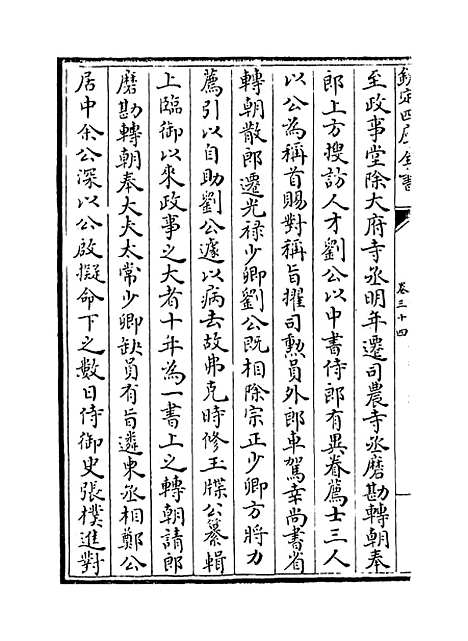 欽定四庫全書
卷三十四
至政事堂除大府寺丞明年遷司農寺丞磨勘轉朝奉
郎上方搜訪人才劉公以中書侍郎有異眷薦士三人
以公為稱首賜對稱旨擢司勲員外郎車駕幸尚書省
轉朝散郎遷光禄少卿劉公既相除宗正少卿方將力
薦引以自助劉公遽以病去故弗克時修玉牒公纂輯
上臨御以來政事之大者十年為一書上之轉朝請郎
磨勘轉朝奉大夫太常少卿缺員有旨遴柬丞相鄭公
居中余公深以公啟擬命下之數日侍御史張樸進對